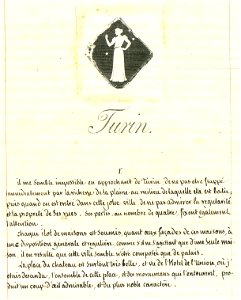 Turin.
I
il me semble impossible en approchant de Turin de ne pas être frappé
immédiatement par la richesse de la plaine au milieu de laquelle elle est batie,
puis quand on est entré dans cette jolie ville de ne pas admirer la regularité
et la propreté de ses rues. Ses portes, au nombre de quatre, fixent également
l'attention.
chaque ilot de maisons est soumis quant aux façades de ces maisons, à
une disposition générale et régulière, comme s'il ne s'agissait que d'une seule maison
il en résulte que cette ville semble n'être composée que de palais.
La place du chateau est surtout très belle, et vu de l'Hotel de l'Union, où j'
étais descendu, l'ensemble de cette place, et des monumens qui l'entourent, produit
un coup d'œil admirable, et du plus noble caractère.